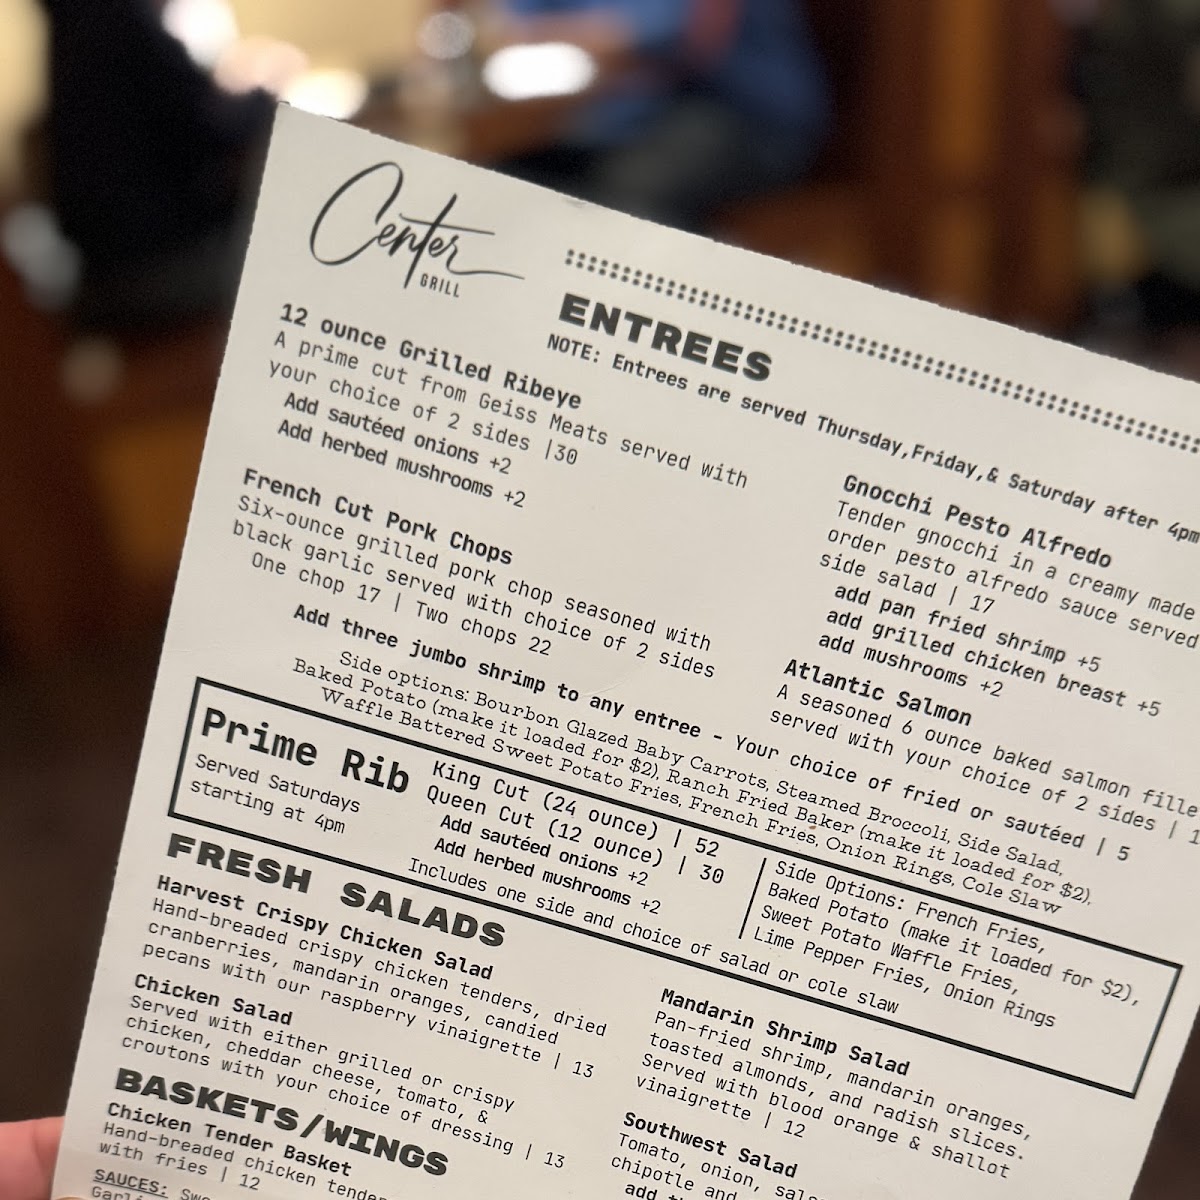 Center
GRILL
ENTREES
NOTE: Entrees are served Thursday,Friday,& Saturday after 4pm
12 ounce Grilled Ribeye
A prime cut from Geiss Meats served with
your choice of 2 sides |30
Add sautéed onions +2
Add herbed mushrooms +2
French Cut Pork Chops
Six-ounce grilled pork chop seasoned with
black garlic served with choice of 2 sides
One chop 17 | Two chops 22
Gnocchi Pesto Alfredo
Tender gnocchi in a creamy made
order pesto alfredo sauce served
side salad | 17
add pan fried shrimp +5
add grilled chicken breast +5
add mushrooms +2
Atlantic Salmon
A seasoned 6 ounce baked salmon fille
served with your choice of 2 sides | 1
Add three jumbo shrimp to any entree - Your choice of fried or sautéed | 5
Side options: Bourbon Glazed Baby Carrots, Steamed Broccoli, Side Salad,
Baked Potato (make it loaded for $2), Ranch Fried Baker (make it loaded for $2),
Waffle Battered Sweet Potato Fries, French Fries, Onion Rings, Cole Slaw
Prime Rib
Served Saturdays
starting at 4pm
King Cut (24 ounce) | 52
Queen Cut (12 ounce) | 30
Add sautéed onions +2
Add herbed mushrooms +2
Includes one side and choice of salad or cole slaw
Side Options: French Fries,
Baked Potato (make it loaded for $2),
Sweet Potato Waffle Fries,
Lime Pepper Fries, Onion Rings
FRESH SALADS
Harvest Crispy Chicken Salad
Hand-breaded crispy chicken tenders, dried
cranberries, mandarin oranges, candied
pecans with our raspberry vinaigrette | 13
Chicken Salad
Served with either grilled or crispy
chicken, cheddar cheese, tomato, &
croutons with your choice of dressing | 13
Mandarin Shrimp Salad
Pan-fried shrimp, mandarin oranges,
toasted almonds, and radish slices.
Served with blood orange & shallot
vinaigrette | 12
Southwest Salad
Tomato, onion, salsa
chipotle and
add
BASKETS/WINGS
Chicken Tender Basket
Hand-breaded chicken tender
with fries | 12
SAUCES: